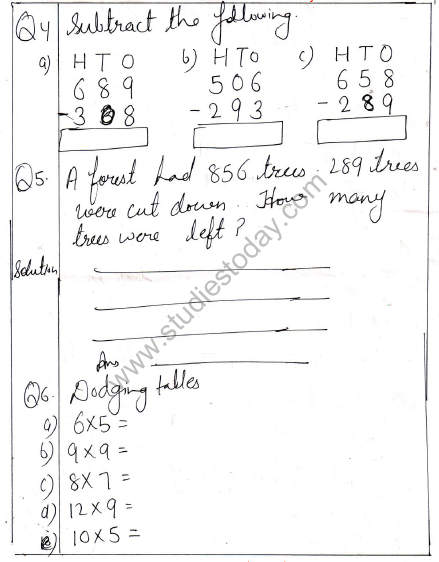 Q4 Subtract the following.
a) H T O b) H T O c) H T O
6 8 9 5 0 6 6 5 8
- 3 8 - 2 9 3 - 2 8 9
Q5. A forest had 856 trees. 289 trees
were cut down. How many
trees were left?
Solution
Ans
Q6. Dodging tables
a) 6×5 =
b) 9×9 =
c) 8×7 =
d) 12×9 =
e) 10×5 =
www.studiestoday.com